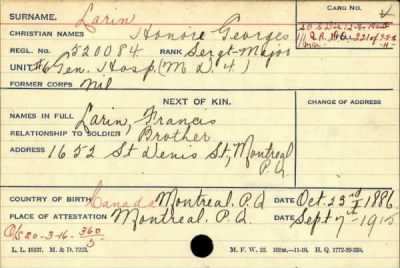 SURNAME. Larin
CARD NO.
CHRISTIAN NAMES Honoré Georges
REGL. NO. 520084 RANK Sergt-Major
UNIT #6 Gen. Hosp. (M D. 4)
FORMER CORPS Nil
NEXT OF KIN.
CHANGE OF ADDRESS
NAMES IN FULL Larin, Francis
RELATIONSHIP TO SOLDIER Brother
ADDRESS 1652 St Denis St, Montreal
P.Q.
COUNTRY OF BIRTH Canada Montreal. P.Q DATE Oct. 23rd 1886
PLACE OF ATTESTATION Montreal. P.Q DATE Sept 7th 1915
O/S 20-3-16 360/5
L. L. 16437. M. & D. 7253. M. F. W. 22. H. Q. 1772-39-338.